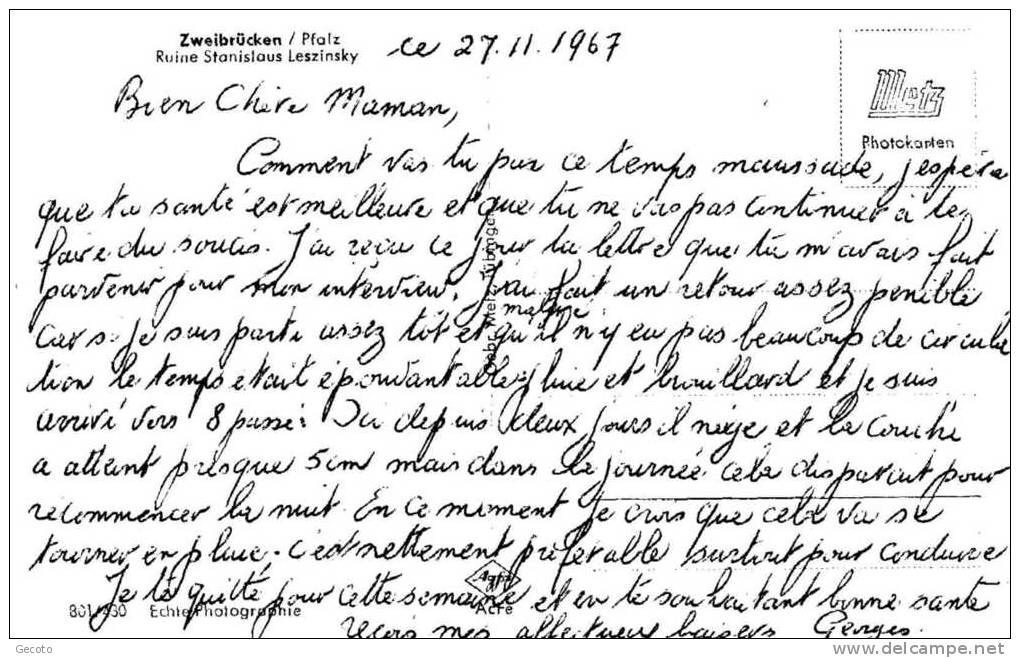 Zweibrücken / Pfalz
Ruine Stanislaus Leszinsky
ce 27.11.1967
Metz
Photokarten
Bien Chère Maman,
Comment vas tu par ce temps maussade, j'espère
que ta santé est meilleure et que tu ne vas pas continuer à te
faire du soucis. J'ai reçu ce jour ta lettre que tu m'avais fait
parvenir pour mon interview. J'ai fait un retour assez penible
malgré
car si je suis parti assez tôt et qu'il n'y eu pas beaucoup de circula
tion le temps etait épouvantable, pluie et brouillard et je suis
arrivé vers 8 passé. Ici depuis deux jours il neige et la couche
a atteint presque 5cm mais dans la journée cela disparait pour
recommencer la nuit. En ce moment je crois que cela va se
tourner en pluie. c'est nettement préférable surtout pour conduire
Je te quitte pour cette semaine et en te souhaitant bonne santé
reçois mes affectueux baisers Georges.
Gebr. Metz Tübingen
Agfa
801/430 Echte Photographie
Gecoto
www.delcampe.net